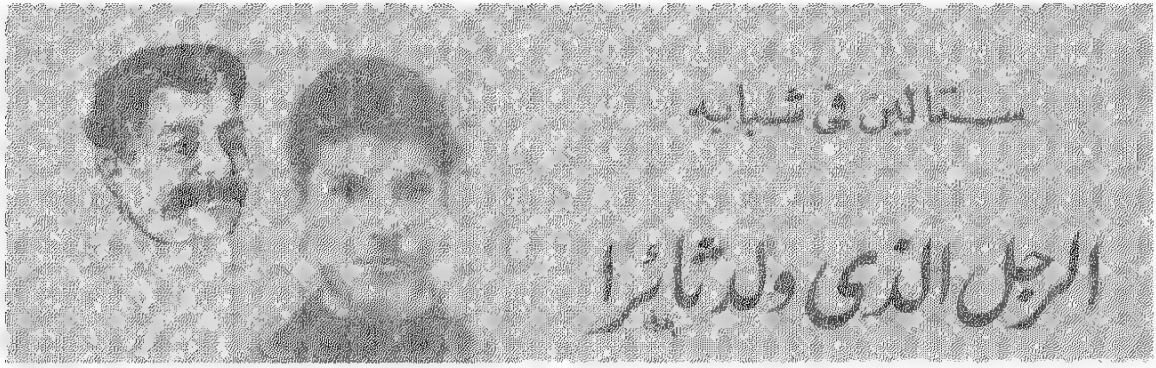 ستالين فى شبابه
الرجل الذى ولد ثائرا